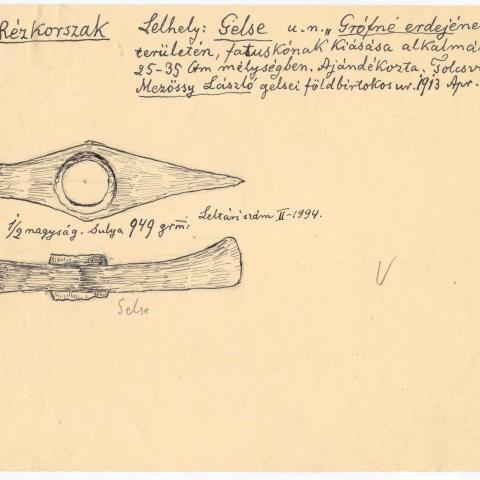 Rézkorszak
Lelhely: Gelse u.n. „Grófné erdejéne
területén, fatuskónak kiásása alkalmá
25-35 cm mélységben. Ajándékozta. Tolcsv
Mezőssy László gelsei földbirtokos ur. 1913 Apr.
1/2 nagyság. Sulya 949 grm:
Leltári szám II-1994.
Gelse
V